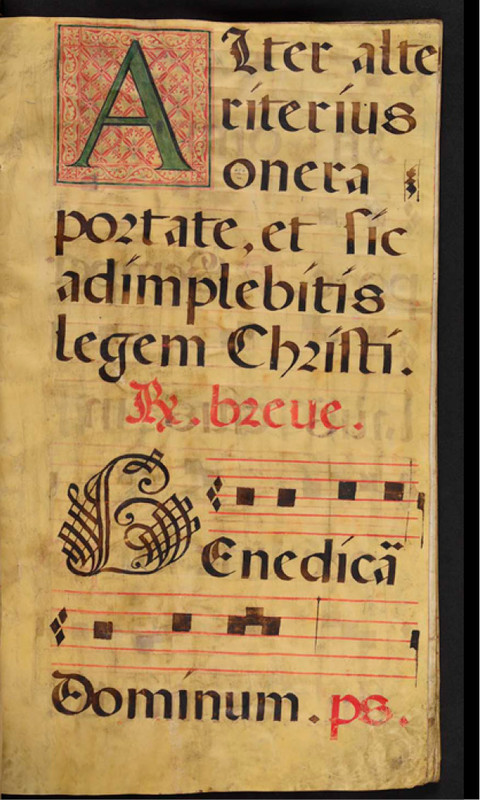 Alter alte
riterius
onera
portate, et sic
adimplebitis
legem Christi.
R. breve.
Benedicã
Dominum. ps.